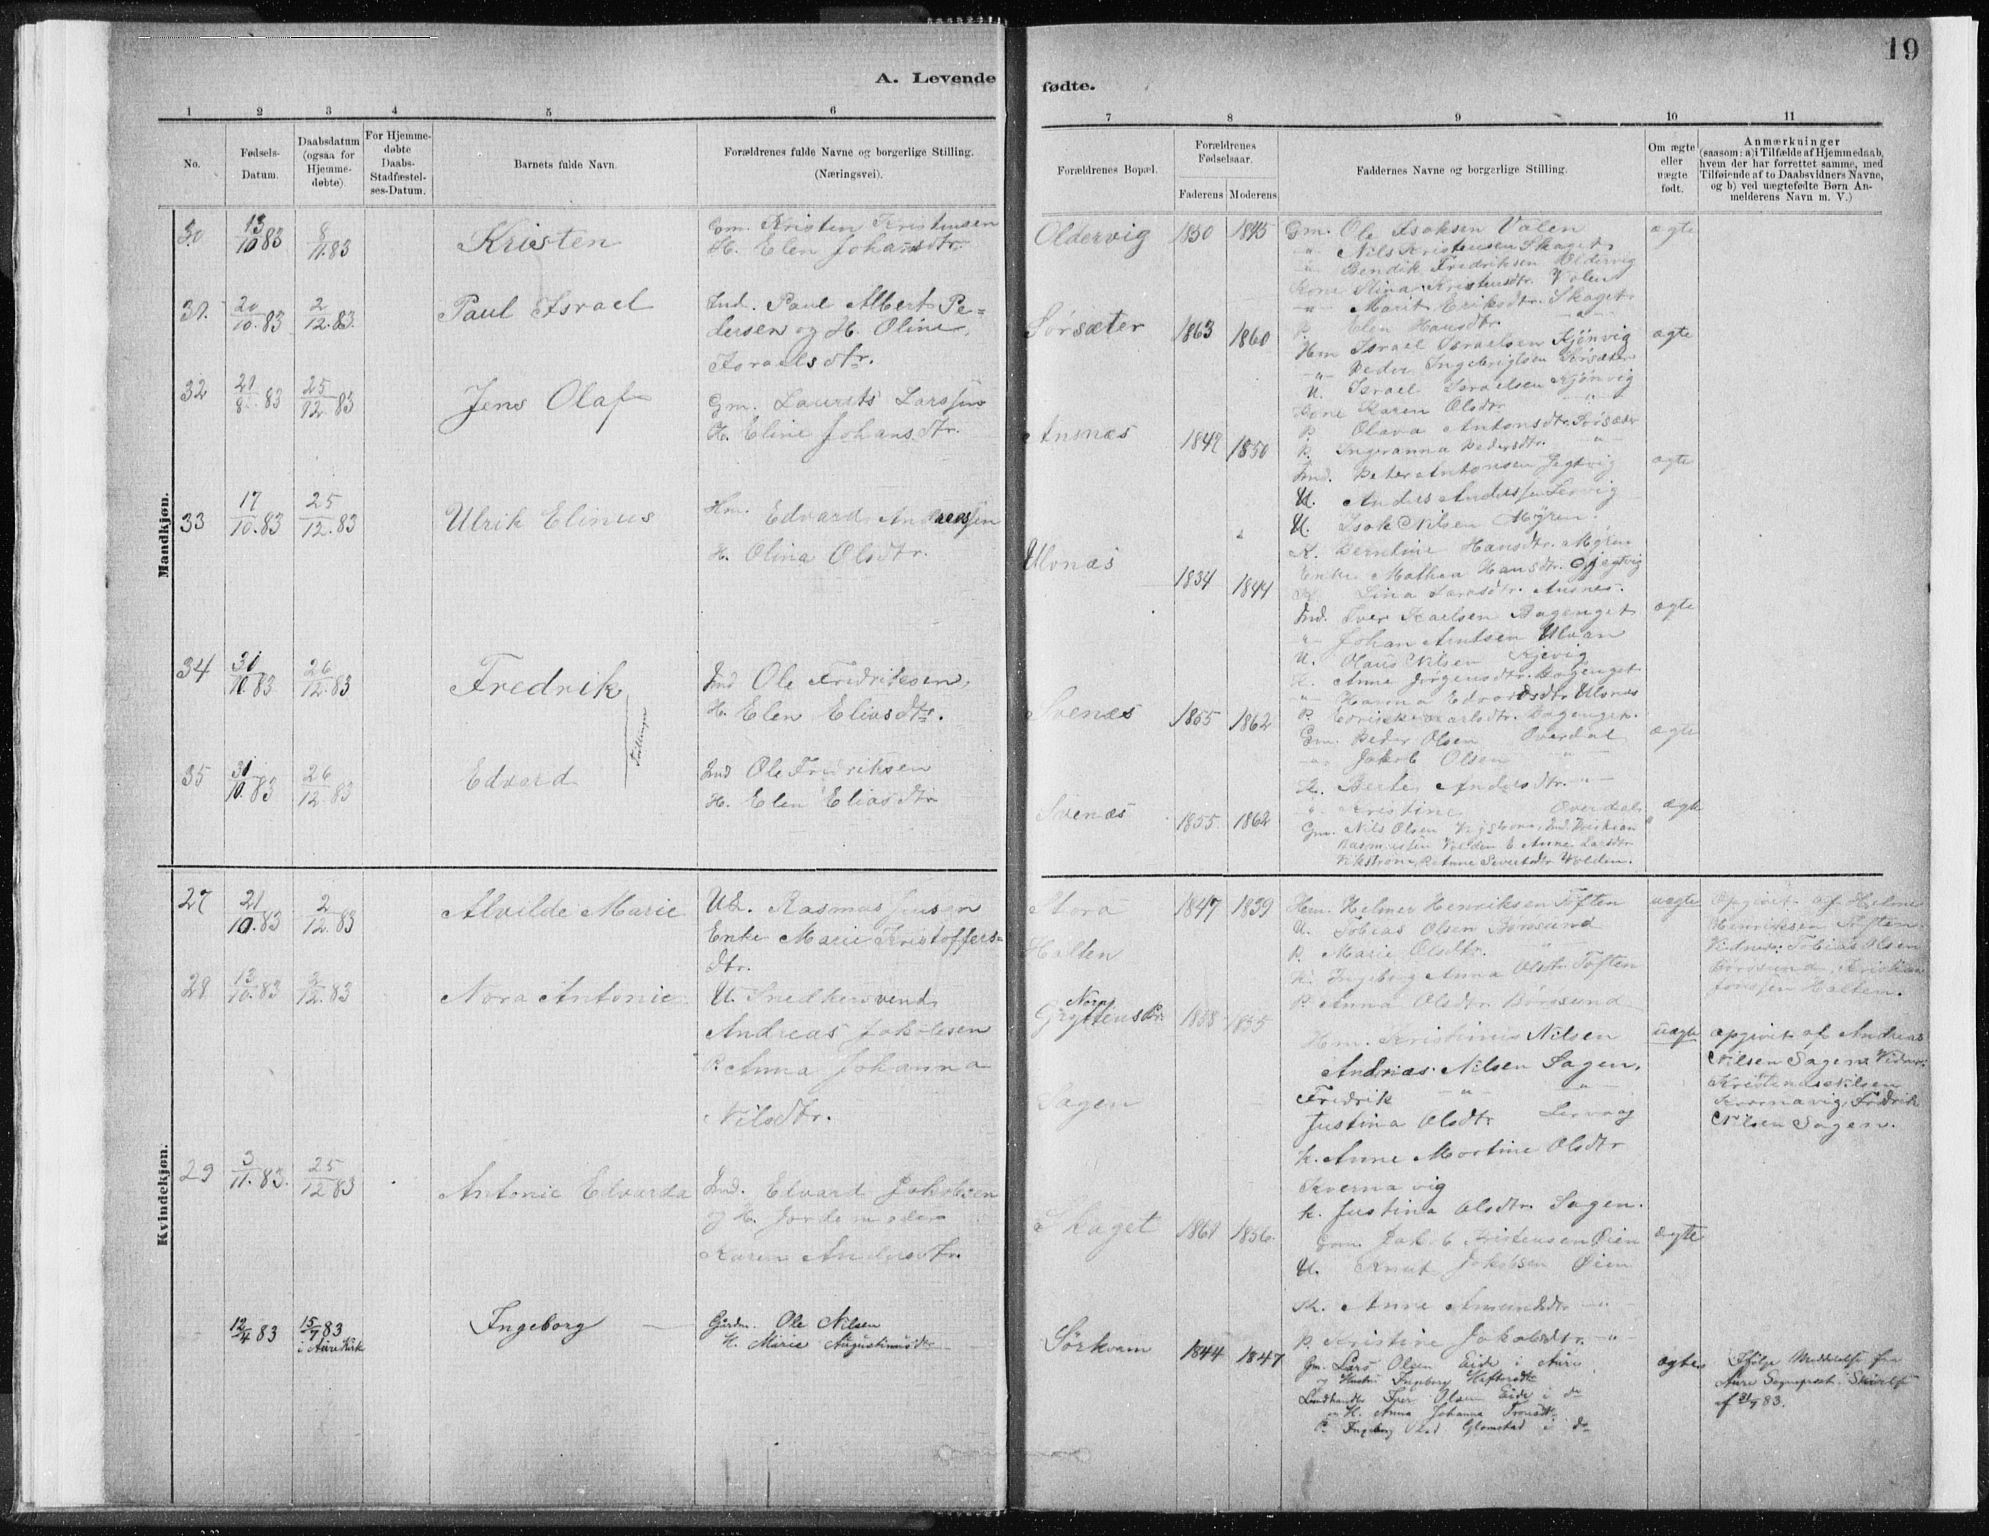 19
A. Levende
fødte.
1 2 3 4 5 6
7 8 9 10 11
No.
Fødsels-
Datum.
Daabsdatum
(ogsaa for
Hjemme-
døbte).
For Hjemme-
døbte
Daabs-
Stadfæstel-
ses-Datum.
Barnets fulde Navn.
Forældrenes fulde Navne og borgerlige Stilling.
(Næringsvei).
Forældrenes Bopæl.
Forældrenes
Fødselsaar.
Faderens Moderens
Faddernes Navne og borgerlige Stilling.
Om ægte
eller
uægte
født.
Anmærkninger
(saasom: a) i Tilfælde af Hjemmedaab,
hvem der har forrettet samme, med
Tilføiende af to Daabsvidners Navne,
og b) ved uægtefødte Børn An-
melderens Navn m. V.)
Mandkjøn.
30 13/10 83 8/11.83 Kristen
Gm. Kristen Kristensen
H. Elen Johansdtr.
Oldervig 1850 1845
Gm. Ole Isaksen Valen
ægte
-"- Nils Kristensen Skaget
-"- Bendik Fredriksen Oldervig
Kone Stina Kristensdtr. Valen
-"- Marit Eriksdtr. Skaget
P. Elen Hansdtr. -"-
31. 20/10.83 2/12.83 Paul Israel
Ind. Paul Albert Pe-
dersen og H. Oline
Israelsdtr.
Sørsæter 1863 1860
Hm Israel Israelsen Kjønvig
ægte
-"- Peder Ingebrigtsen Sørsæter
U. Israel Israelsen Kjønvig
Kone Karen Olsdtr.
P. Olava Antonsdtr. Sørsæter
P. Ingeranna Pedersdtr. -"-
32 29/8.83 25/12.83 Jens Olaf
Gm. Laurits Larssen
H. Eline Johansdtr.
Ansnæs 1849 1850
Ind. Peter Antonsen Jegtvig
ægte
U. Anders Anderssen Lervig
U. Isak Nilsen Myren.
K. Berntine Hansdtr. Myren
Enke Mathea Hansdtr. Gjegtvig
Lina Larsdtr. Ansnes.
33 17/10.83 25/12.83 Ulrik Elinus
Hm. Edvard Andreassen
H. Olina Olsdtr.
Ulvnæs 1834 1844
Ind. Iver Karlsen Bagenget
ægte
-"- Johan Arntsen Ulvan
U. Olaus Nilsen Kjevig
K. Anne Jørgensdtr. Bagenget
-"- Hanna Edvardsdtr. Ulvnæs
34 31/10.83 26/12.83 Fredrik
Tvillinger
Ind Ole Fredriksen,
H. Elen Eliasdtr.
Svenæs 1855 1862
Gm. Peder Olsen Overdal
ægte
-"- Jakob Olsen -"-
K. Berte Andersdtr. -"-
-"- Kristine Overdal
35 31/10.83 26/12.83 Edvard
Ind Ole Fredriksen
H. Elen Eliasdtr
Svenæs 1855 1862
ægte
Gm. Nils Olsen Vikstrøm, Ind. Kristian
Rasmussen Volden E Anne Larsdtr
Vikstrøm, P. Anne Sivertsdtr Volden.
Kvindekjøn.
27 21/10.83 2/12.83 Alvilde Marie
Ub. Rasmus Jensen
Enke Marie Kristoffers-
dtr.
Storø
Halten
1847 1839
Hm. Helmer Henriksen Toften
U. Tobias Olsen Børøsund
P. Marie Olsdtr.
K. Ingeborg Anna Olsdtr Toften
P. Anna Olsdtr. Børøsund
uægte
Opgivet af Helmer
Henriksen Toften.
Vidner: Tobias Olsen
Børøsund, Kristian
Jonssen Halten.
28 13/10.83 2/12.83 Nora Antonie
U. Snedkersvend
Andreas Jakobsen
P. Anna Johanna
Nilsdtr.
Sagen
1858 1855
Hm. Kristinus Nilsen
Andrias Nilsen Sagen,
Fredrik -"- -"-
Justina Olsdtr Lervaag
K. Anne Mortine Olsdtr
Kvernavig
K. Justina Olsdtr. Sagen.
uægte
Opgivet af Andreas
Nilsen Sagen. Vidner:
Kristinus Nilsen
Kvernavig, Fredrik
Nilsen Sagen.
29 3/11.83. 25/12 83 Antonie Edvarda
Ind. Edvard Jakobsen
og H. Jordemoder
Karen Andersdtr.
Skaget 1861 1856.
Gm. Jakob Kristensen Øien
ægte
U. Knut Jakobsen Øien
K. Anne Amundsdtr. -"-
P. Kristine Jakobsdtr. -"-
12/4 83 15/7 83
i Aure Kirk
Ingeborg
Gårdm. Ole Nilsen
H. Marie Augustinusdtr
Sørkvam 1844 1847
Gm. Lars Olsen Eide i Aure
og Hustru Ingeborg
Landhandler Iver Olsen Eide i do
H. Anna Johanna
P. Ingeborg Glomstad i do
ægte
Ifølge Meddelelse fra
Aure Sognepræst
af 31/7 83.